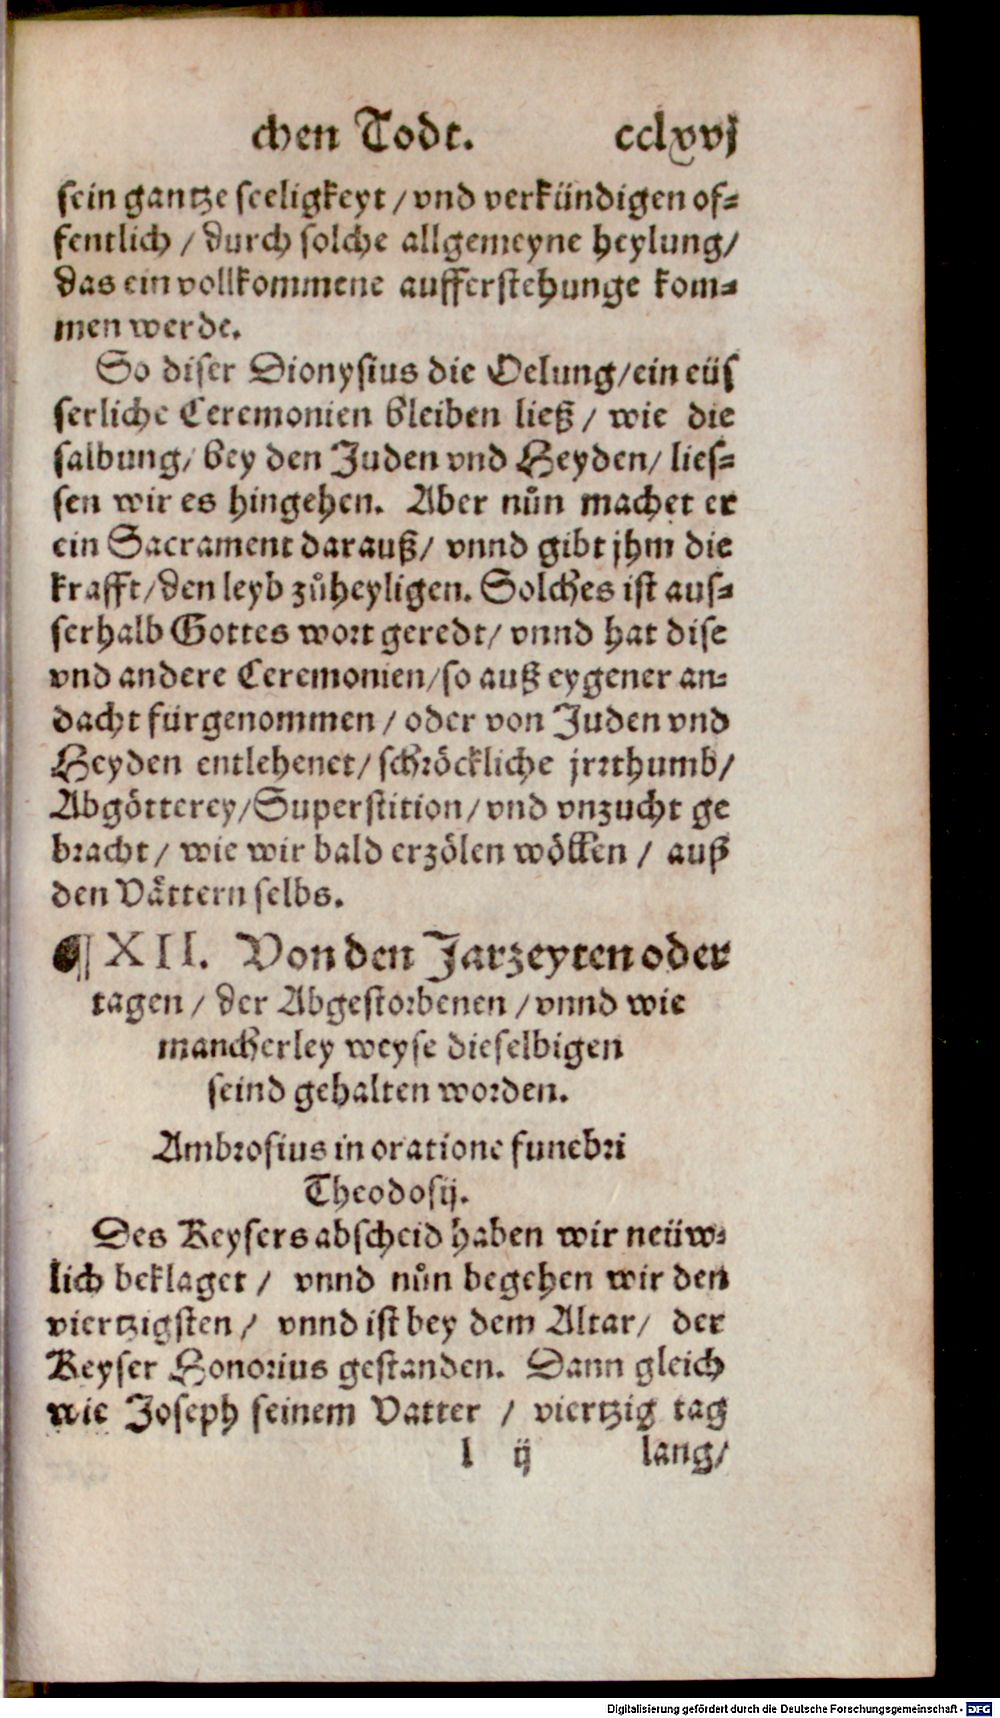 chen Todt. cclxvj
sein gantze seeligkeyt / vnd verkündigen of=
fentlich / durch solche allgemeyne heylung /
das ein vollkommene aufferstehunge kom=
men werde.
So diser Dionysius die Oelung / ein eüs
serliche Ceremonien bleiben ließ / wie die
salbung / bey den Juden vnd Heyden / lies=
sen wir es hingehen. Aber nůn machet er
ein Sacrament darauß / vnnd gibt jhm die
krafft / den leyb zůheyligen. Solches ist aus=
serhalb Gottes wort geredt / vnnd hat dise
vnd andere Ceremonien / so auß eygener an=
dacht fürgenommen / oder von Juden vnd
Heyden entlehenet / schröckliche jrrthumb /
Abgötterey / Superstition / vnd vnzucht ge
bracht / wie wir bald erzölen wöllen / auß
den Vättern selbs.
¶ XII. Von den Jarzeyten oder
tagen / der Abgestorbenen / vnnd wie
mancherley weyse dieselbigen
seind gehalten worden.
Ambrosius in oratione funebri
Theodosij.
Des Keysers abscheid haben wir neüw=
lich beklaget / vnnd nůn begehen wir den
viertzigsten / vnnd ist bey dem Altar / der
Keyser Honorius gestanden. Dann gleich
wie Joseph seinem Vatter / viertzig tag
l ij lang /
Digitalisierung gefördert durch die Deutsche Forschungsgemeinschaft - DFG